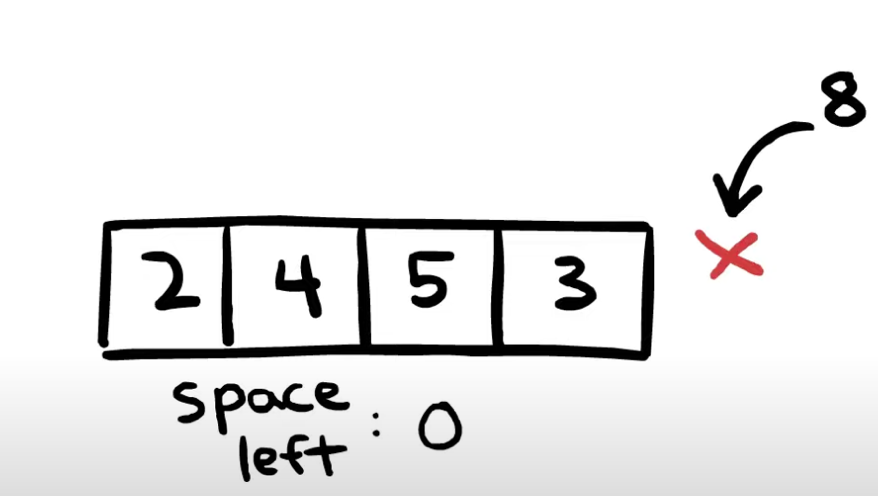 8
2 4 5 3
space
left : 0